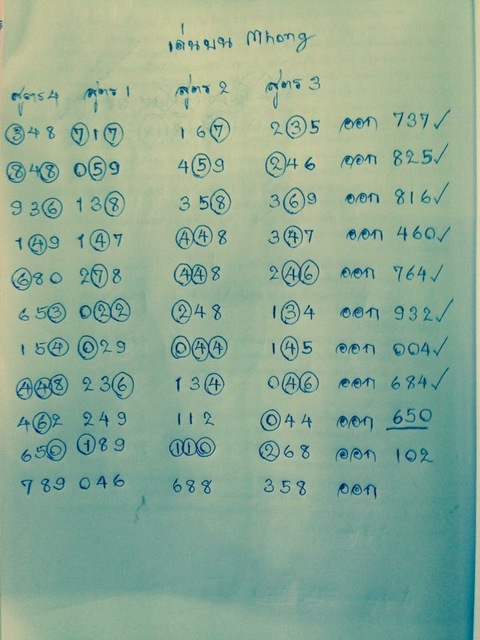 เด่นบน Mhong
สูตร 4 สูตร 1 สูตร 2 สูตร 3
348 717 167 235 ออก 737✓
848 059 459 246 ออก 825✓
936 138 358 369 ออก 816✓
149 147 448 347 ออก 460✓
680 278 448 246 ออก 764✓
653 022 248 134 ออก 932✓
154 029 044 145 ออก 004✓
448 236 134 046 ออก 684✓
462 249 112 044 ออก 650
650 189 110 268 ออก 102
789 046 688 358 ออก